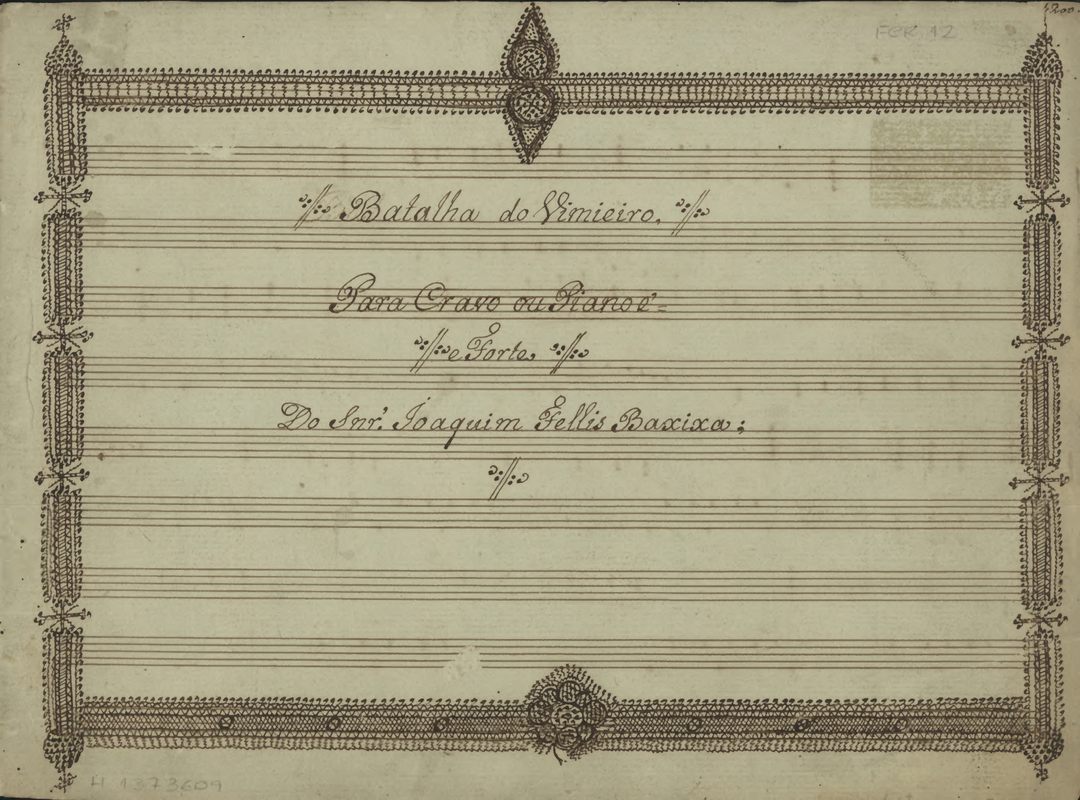 FCR 12
1200.
Batalha do Vimieiro.
Para Cravo ou Piano e=
e Forte.
Do Snr. Joaquim Fellis Baxixa;
H 1373609